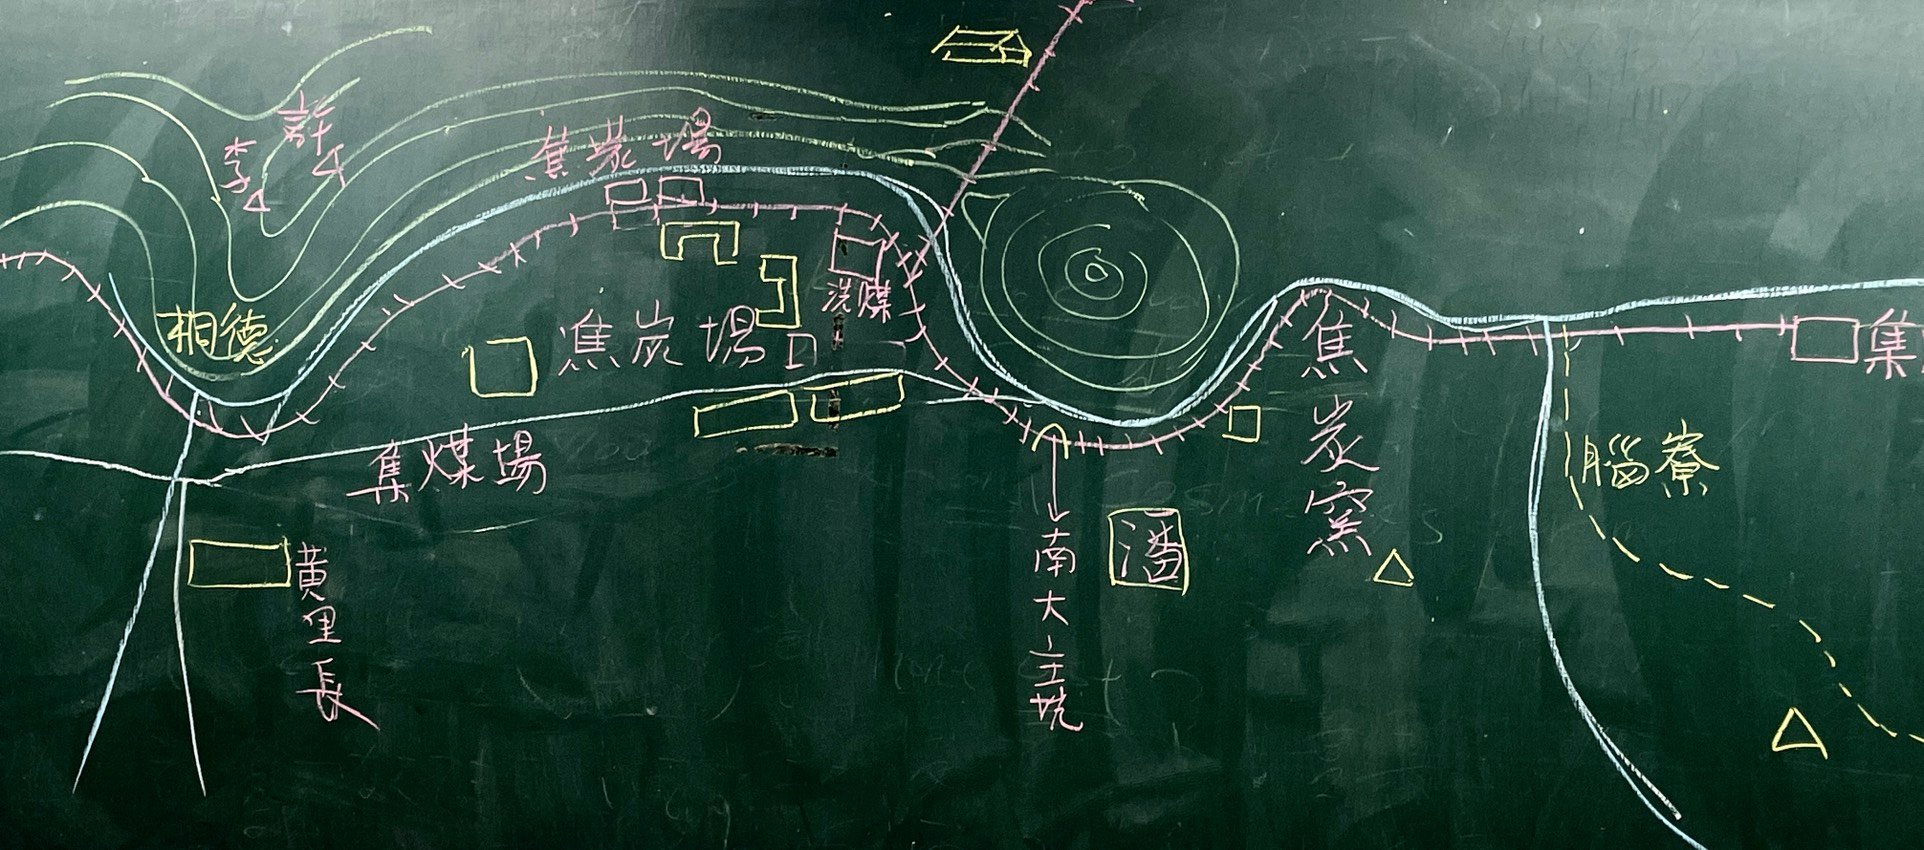 許
李
焦炭場
相德
洗煤
焦炭場
集煤場
焦炭窯
集
腦寮
黃里長
南大主坑
潘